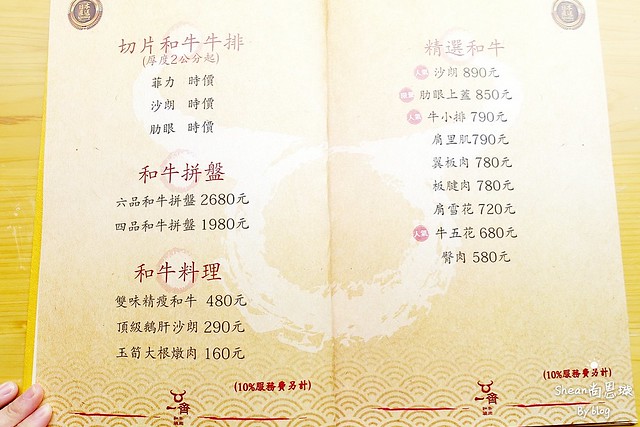 切片和牛牛排
(厚度2公分起)
菲力 時價
沙朗 時價
肋眼 時價
和牛拼盤
六品和牛拼盤 2680元
四品和牛拼盤 1980元
和牛料理
雙味精瘦和牛 480元
頂級鵝肝沙朗 290元
玉筍大根燉肉 160元
(10%服務費另計)
精選和牛
人氣 沙朗 890元
肋眼上蓋 850元
人氣 牛小排 790元
肩里肌790元
翼板肉 780元
板腱肉 780元
肩雪花 720元
人氣 牛五花 680元
臀肉 580元
(10%服務費另計)
Shean尚恩游
By.blog